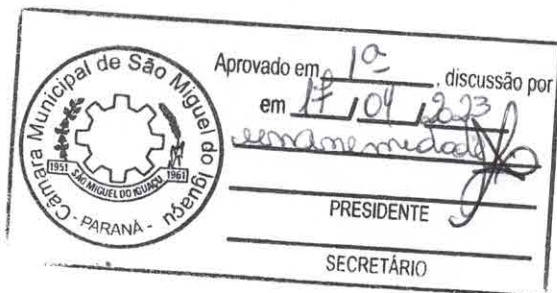 Câmara Municipal de São Miguel do Iguaçu
- PARANÁ -
1951 SÃO MIGUEL DO IGUAÇU 1961
Aprovado em 1ª , discussão por
em 17 / 04 / 2023
unanimedade
PRESIDENTE
SECRETÁRIO